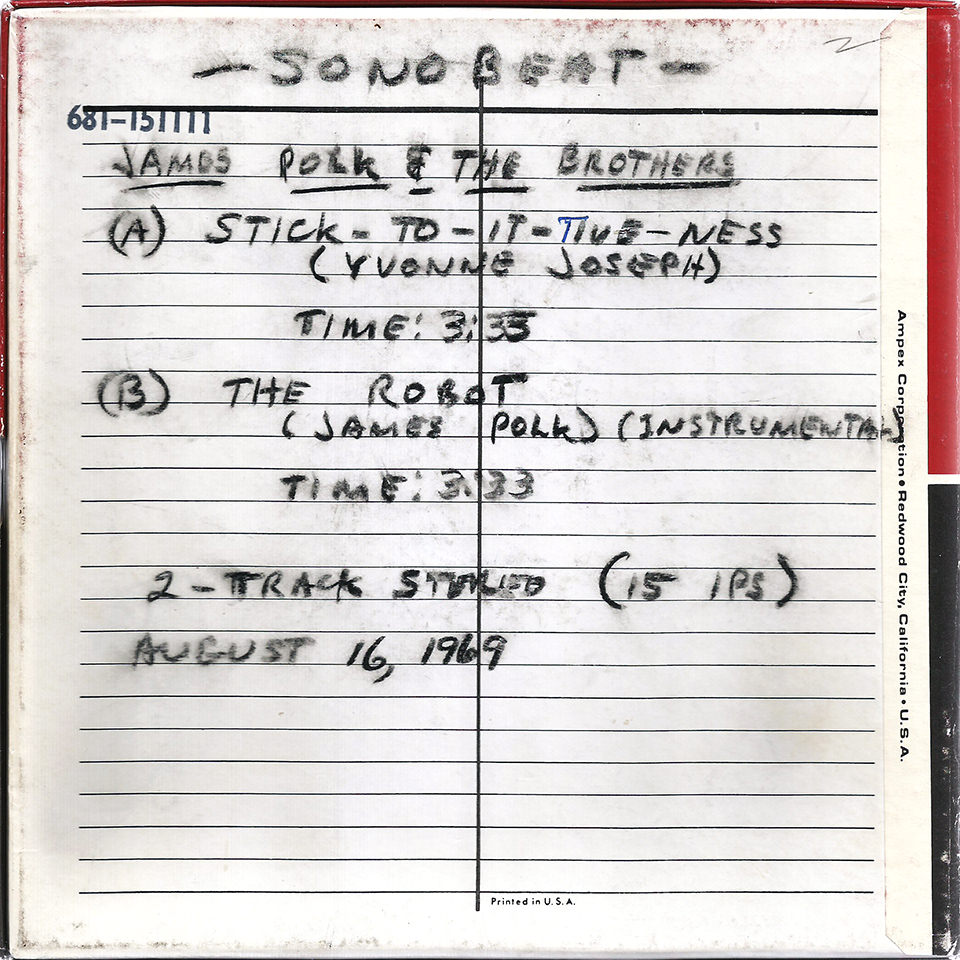 - SONOBEAT -
681-151111
JAMES POLK & THE BROTHERS
(A) STICK-TO-IT-TIVE-NESS
(YVONNE JOSEPH)
TIME: 3:35
(B) THE ROBOT
(JAMES POLK) (INSTRUMENTAL)
TIME: 3:33
2-TRACK STEREO (15 IPS)
AUGUST 16, 1969
Printed in U.S.A.
Ampex Corporation • Redwood City, California • U.S.A.